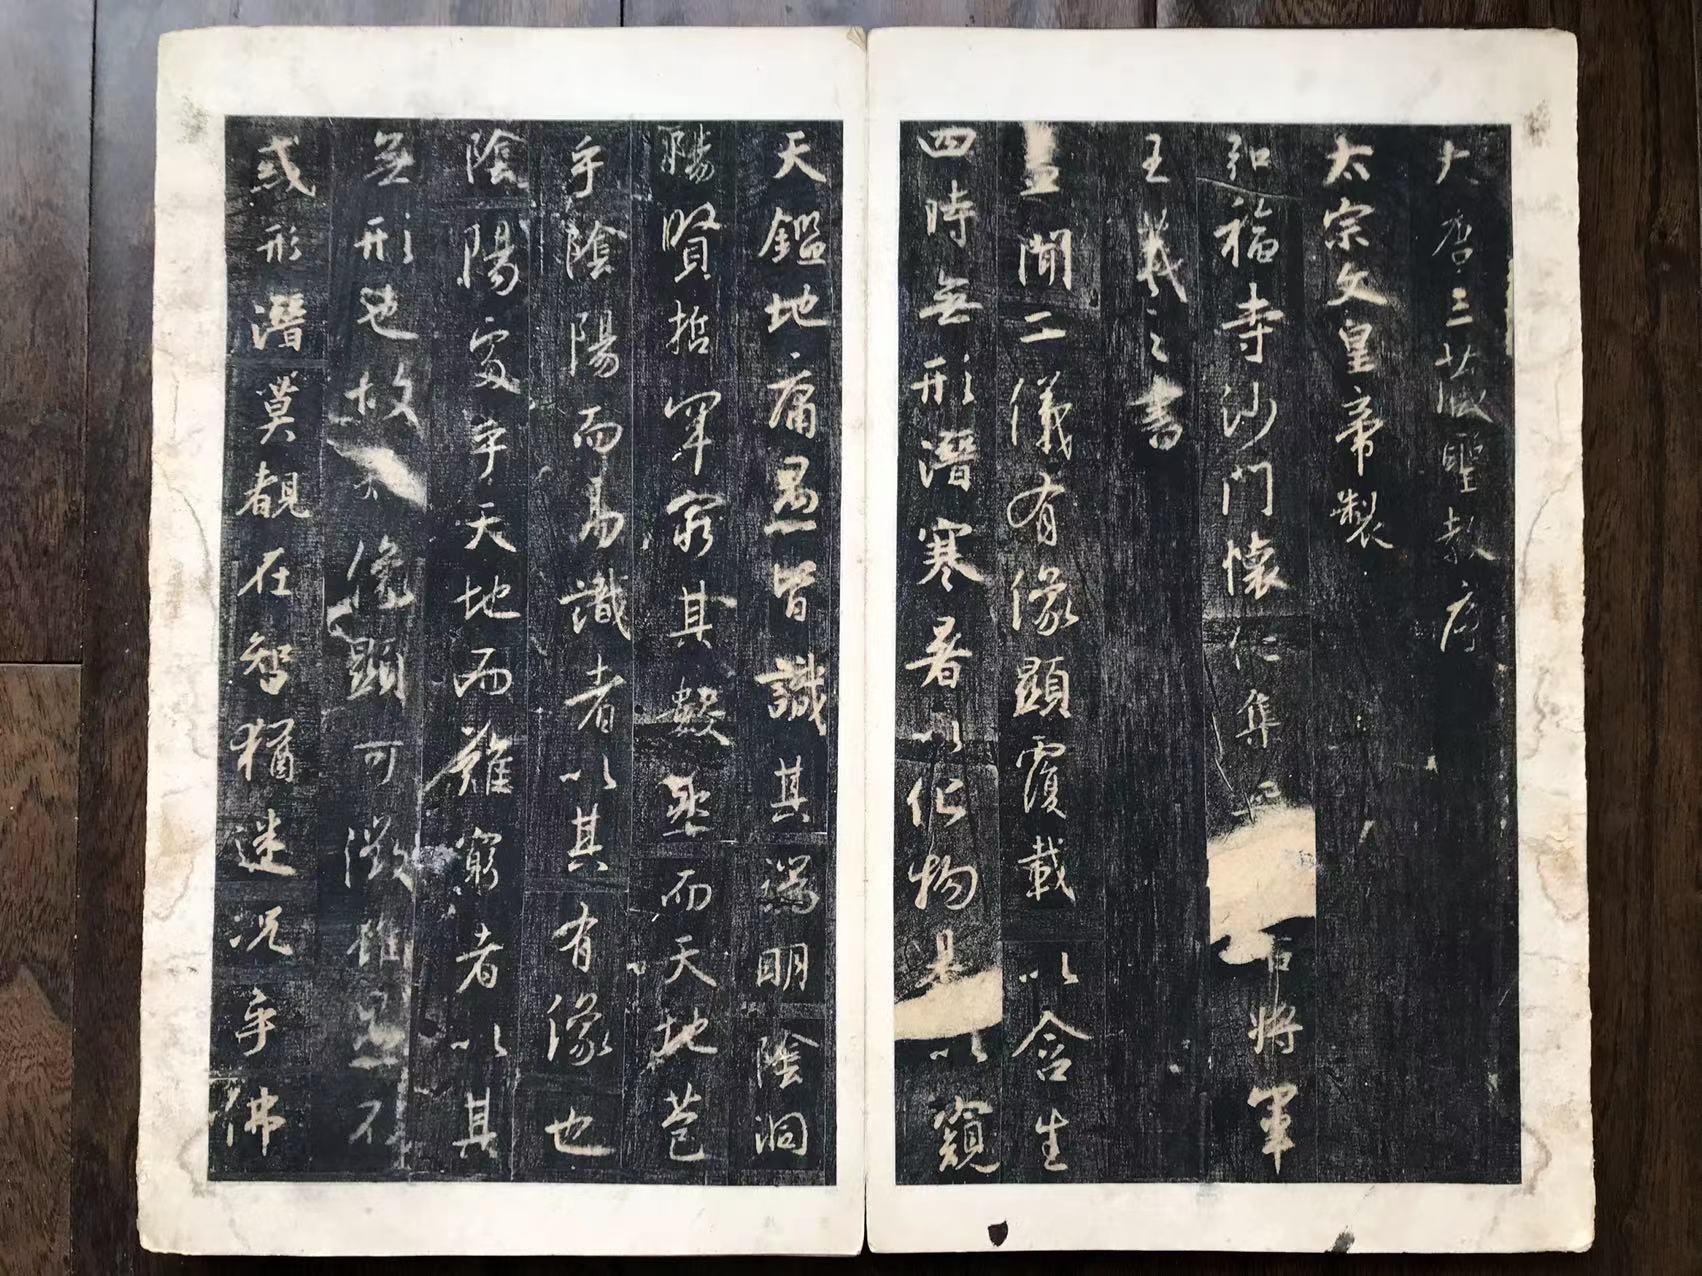 大唐三藏聖教序
太宗文皇帝製
弘福寺沙門懷仁集
右將軍
王羲之書
蓋聞二儀有像顯覆載以含生
四時無形潛寒暑以化物是以窺
天鑑地庸愚皆識其端明陰洞
陽賢哲罕窮其數然而天地苞
乎陰陽而易識者以其有像也
陰陽處乎天地而難窮者以其
無形也故 像顯可徵雖愚不
惑形潛莫覩在智猶迷況乎佛